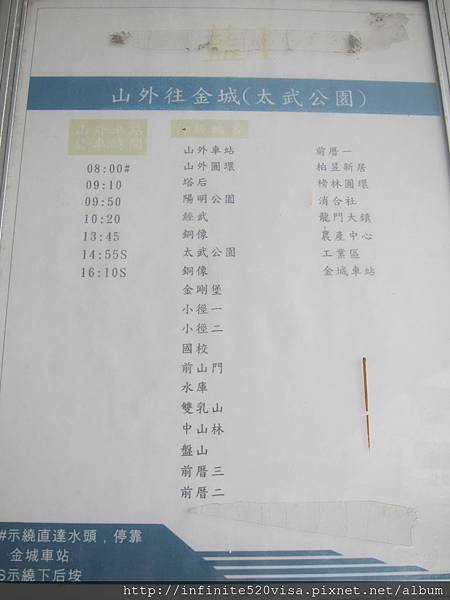 藍1
山外往金城(太武公園)
山外車站
發車時間
08:00#
09:10
09:50
10:20
13:45
14:55S
16:10S
山外車站
山外圓環
塔后
陽明公園
經武
銅像
太武公園
銅像
金剛堡
小徑一
小徑二
國校
前山門
水庫
雙乳山
中山林
盤山
前厝三
前厝二
前厝一
柏昱新居
榜林圓環
消合社
龍門大鎮
農產中心
工業區
金城車站
#示繞直達水頭，停靠
金城車站
S示繞下后垵
http://infinite520visa.pixnet.net/album